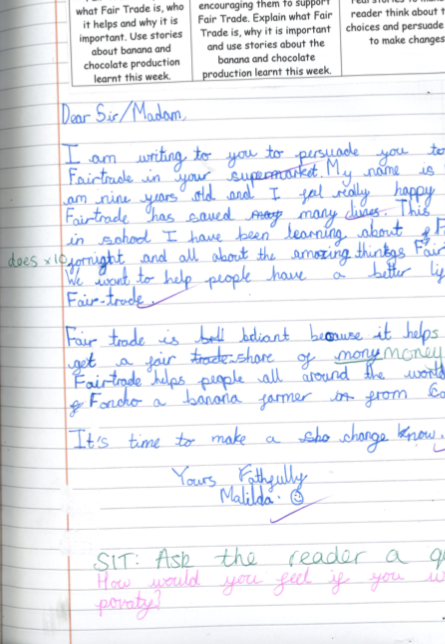 what Fair Trade is, who
it helps and why it is
important. Use stories
about banana and
chocolate production
learnt this week.
encouraging them to support
Fair Trade. Explain what Fair
Trade is, why it is important
and use stories about the
banana and chocolate
production learnt this week.
reader think about t
choices and persuade
to make changes
Dear Sir/Madam,
I am writing to you to persuade you to
Fairtrade in your supermarket. My name is
am nine years old and I feel really happy
Fairtrade has saved many lives. This
in school I have been learning about F
does x10 fornight and all about the amazing thinkgs Fair
We want to help people have a better lif
Fair-trade.
Fair trade is briliant because it helps
get a fair trade share of mony money
Fairtrade helps people all around the world
Foncho a banana farmer in from Co
It's time to make a change know.
Yours Fathfully
Malilda.
SIT: Ask the reader a q
How would you feel if you w
povaty?